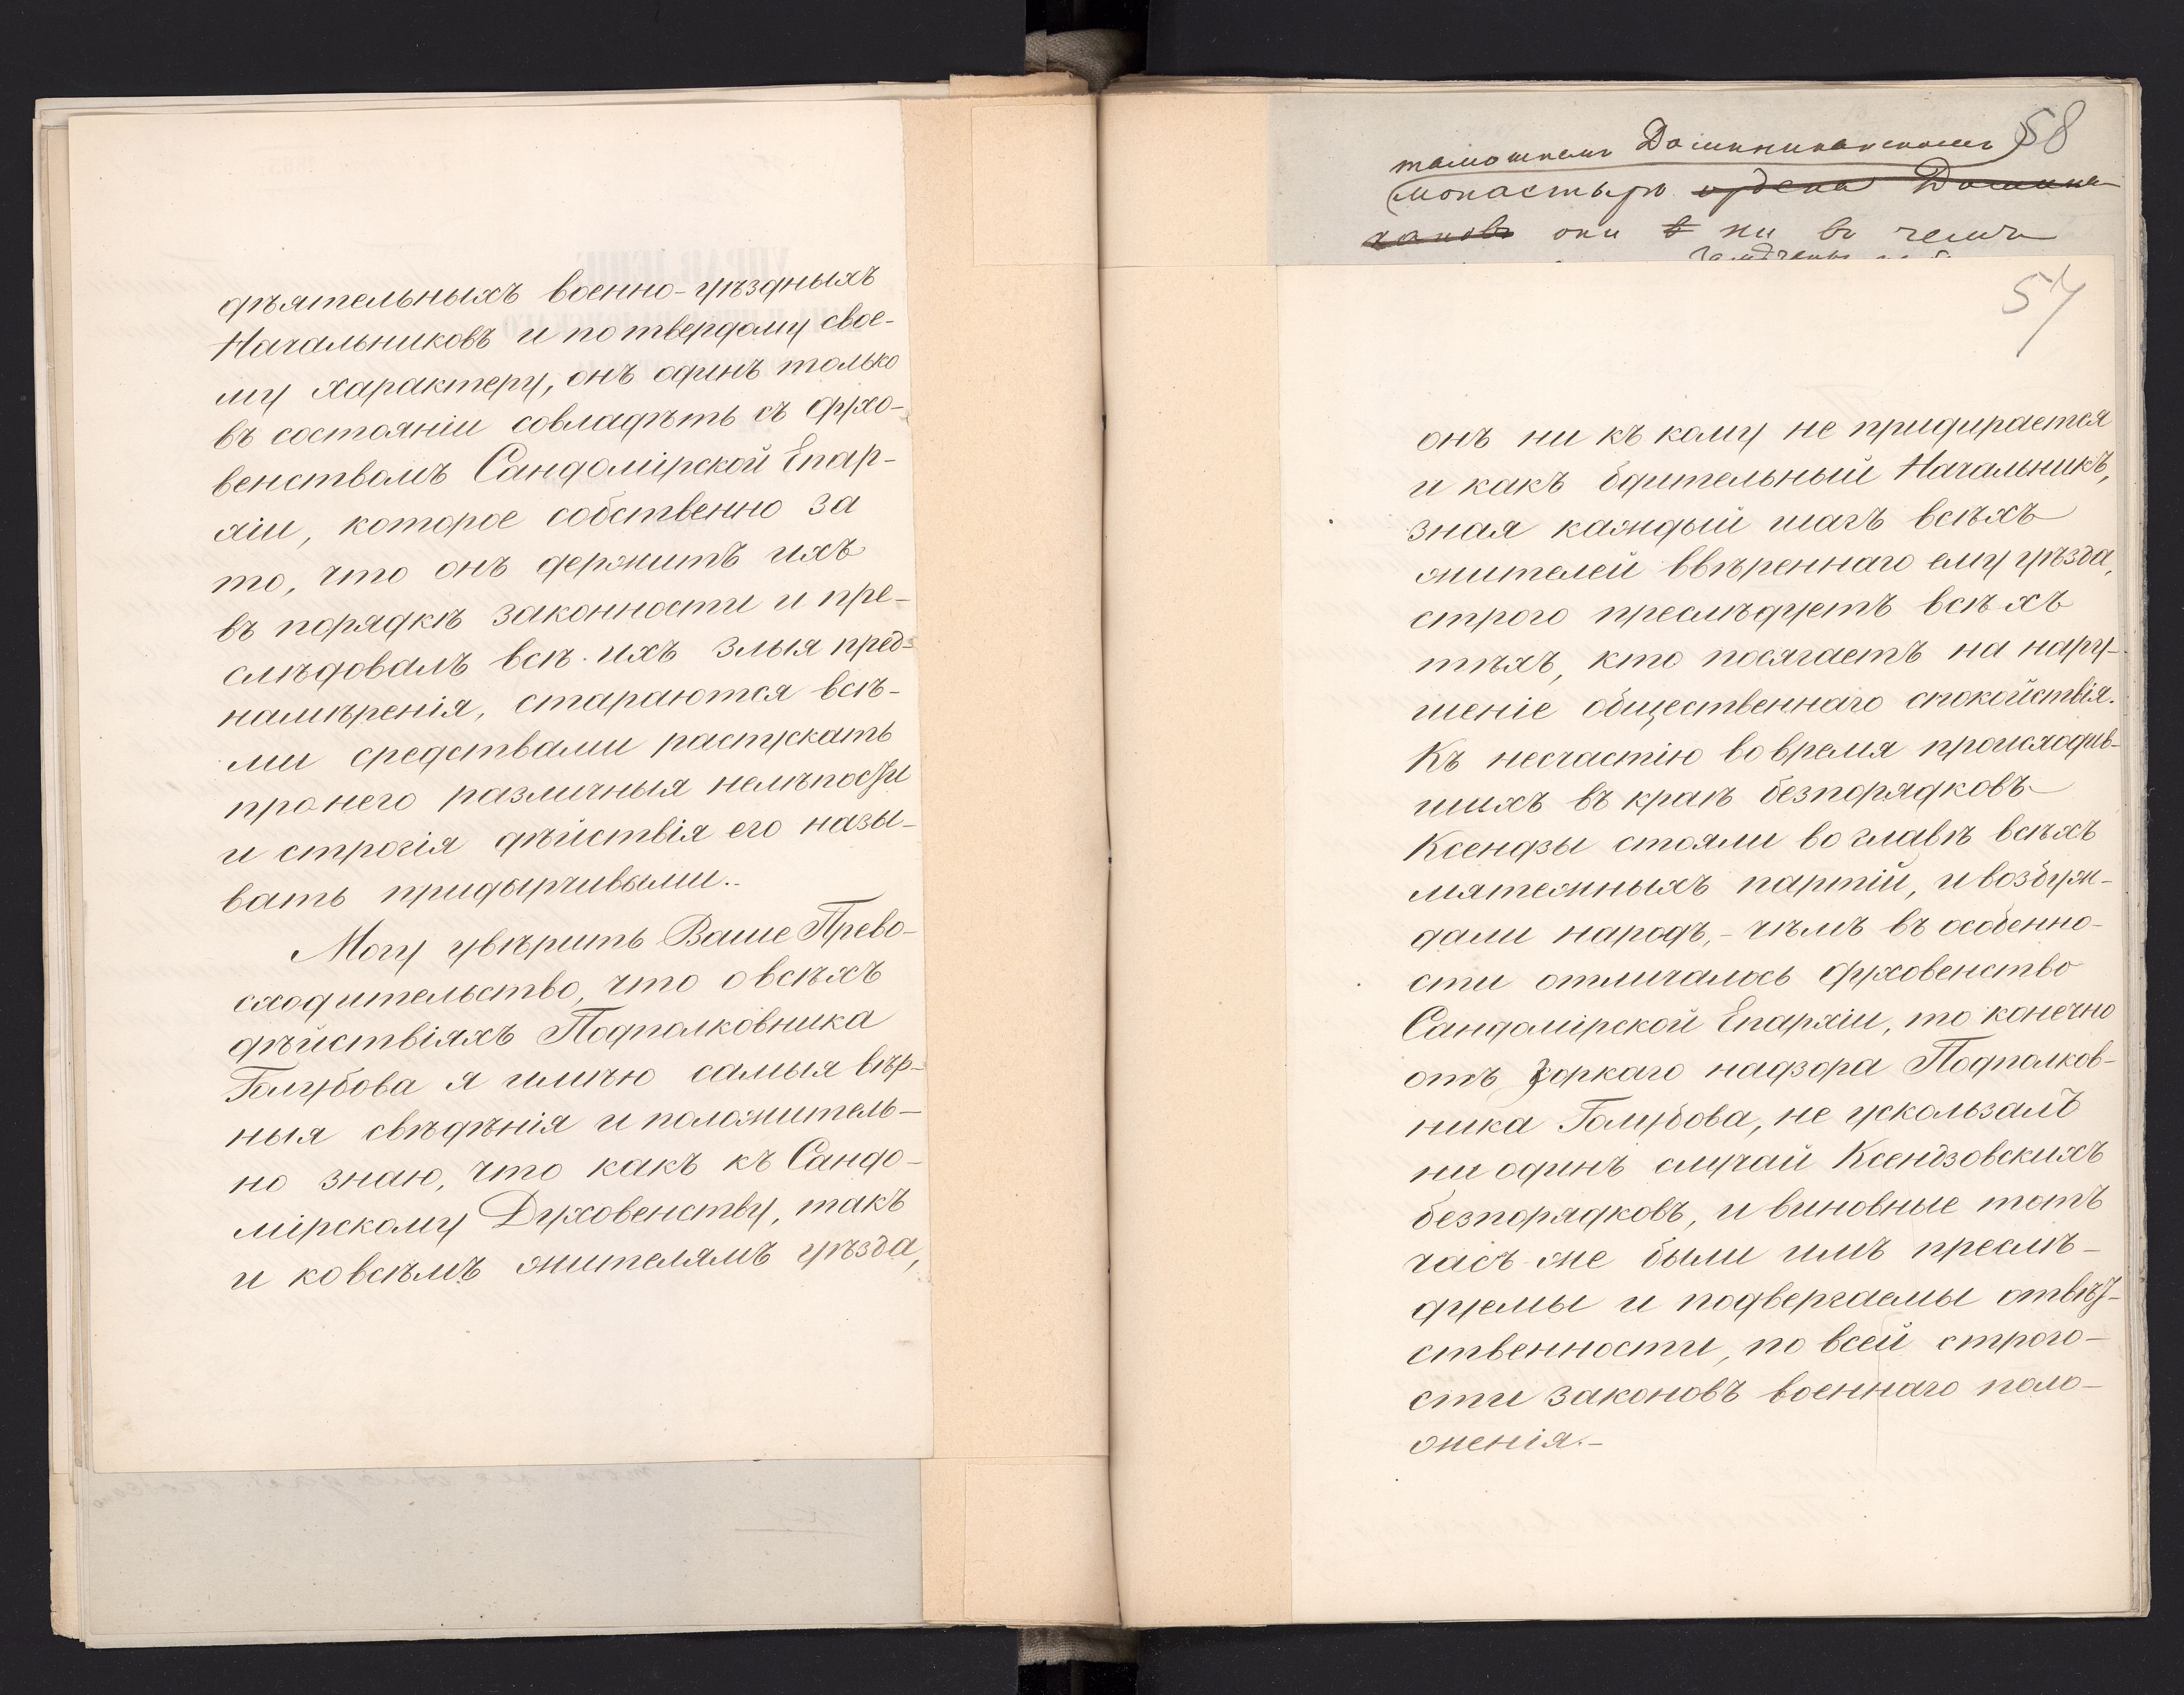 дѣятельныхъ военно-уѣздныхъ
Начальниковъ и по твердому свое-
му характеру, онъ одинъ только
въ состояніи совладѣть съ духо-
венствомъ Сандомірской Епар-
хіи, которое собственно за
то, что онъ держитъ ихъ
въ порядкѣ законности и пре-
слѣдовалъ всѣ ихъ злыя пред-
намѣренія, стараются всѣ-
ми средствами распускать
про него различныя нелѣпости
и строгія дѣйствія его назы-
вать придырчивыми..
Могу увѣрить Ваше Прево-
сходительство, что о всѣхъ
дѣйствіяхъ Подполковника
Голубова я имѣю самыя вѣр-
ныя свѣдѣнія и положитель-
но знаю, что какъ къ Сандо-
мірскому Духовенству, такъ
и ко всѣмъ жителямъ уѣзда,
58
тамошнемъ Доминиканскомъ
монастырѣ ордена Домини-
кановъ они в ни въ чемъ
замѣчены
57
онъ ни къ кому не придирается
и какъ бдительный Начальникъ,
зная каждый шагъ всѣхъ
жителей ввѣреннаго ему уѣзда,
строго преслѣдуетъ всѣхъ
тѣхъ, кто посягаетъ на нару-
шеніе общественнаго спокойствія.
Къ несчастію во время происходив-
шихъ въ краѣ безпорядковъ
Ксендзы стояли во главѣ всѣхъ
мятежныхъ партій, и возбуж-
дали народъ,- чѣмъ въ особенно-
сти отличалось духовенство
Сандомірской Епархіи, то конечно
отъ зоркаго надзора Подполков-
ника Голубова, не ускользалъ
ни одинъ случай Ксендзовскихъ
безпорядковъ, и виновные тотъ
часъ-же были имъ преслѣ-
дуемы и подвергаемы отвѣт-
ственности, по всей строго-
сти законовъ военнаго поло-
женія.-